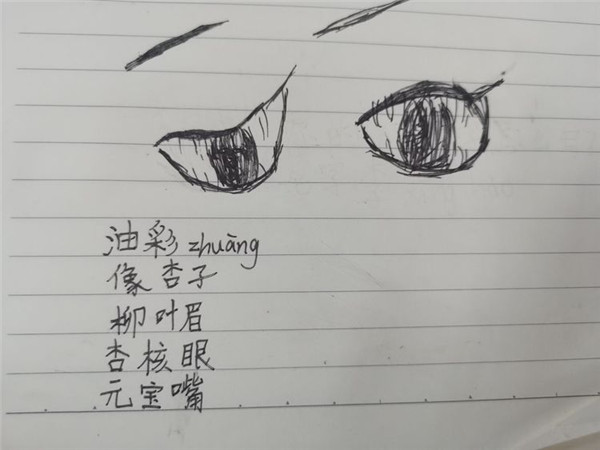 油彩zhuāng
像杏子
柳叶眉
杏核眼
元宝嘴